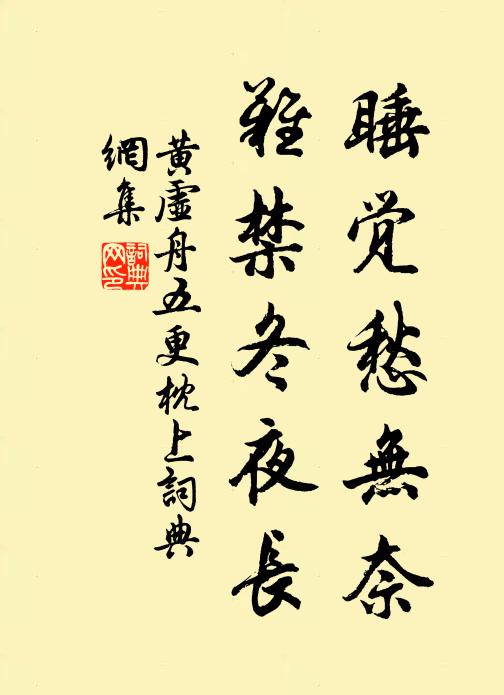 睡觉愁無奈
難禁冬夜長
黄虛舟五更枕上詞典
網集
詞典
网印